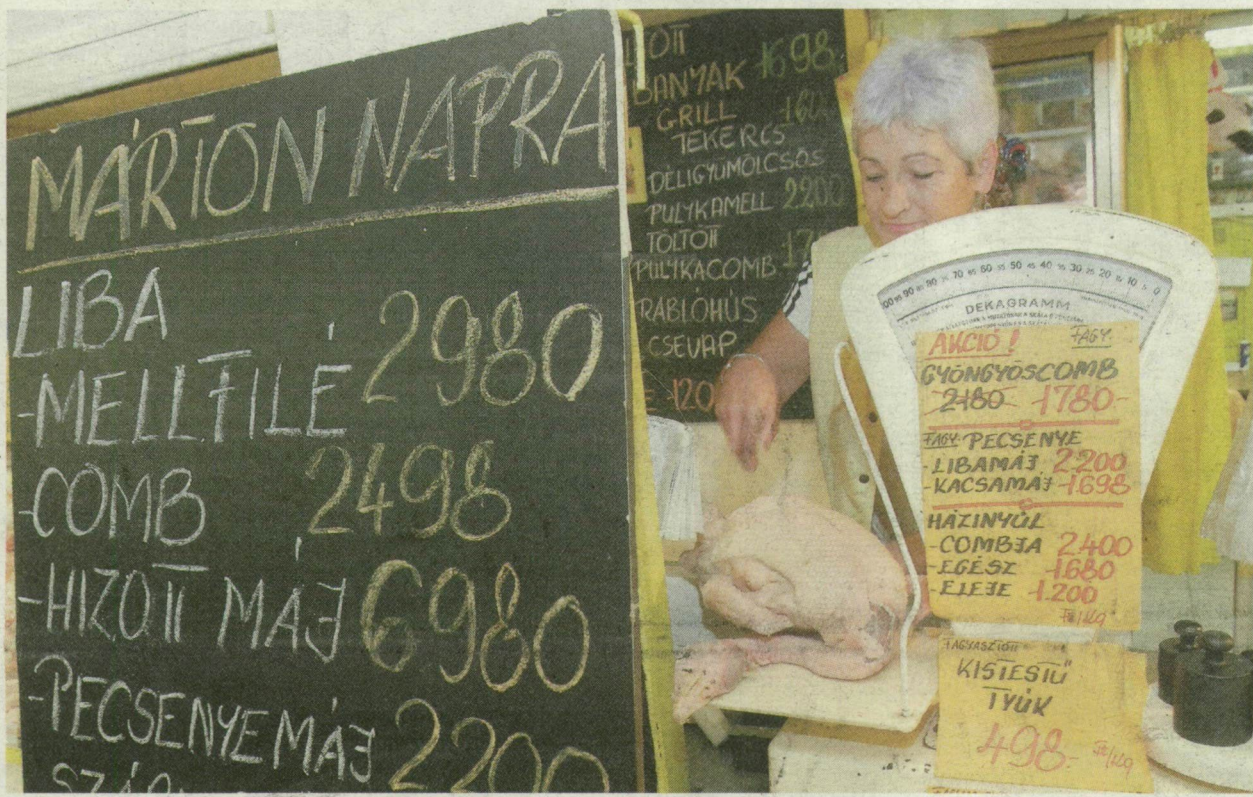 MÁRTON NAPRA
LIBA
-MELLFILÉ 2980
-COMB 2498
-HIZOTT MÁJ 6980
-PECSENYEMÁJ 2200
1698
GRILL
TEKERCS
DÉLIGYÜMÖLCSÖS
PULYKAMELL 2200
TÖLTÖTT
PULYKACOMB
RABLÓHÚS
CSEVAP
100 95 90 85 80 75 70 65 60 55 50 45 40 35 30 25 20 15 10 5 0
DEKAGRAMM
AKCIÓ! FAGY.
GYÖNGYÖSCOMB
2180 1780-
FAGY. PECSENYE
-LIBAMÁJ 2200
-KACSAMÁJ 1698
HÁZINYÚL
-COMBJA 2.400
-EGÉSZ 1680
-ELEJE 1.200
Ft/kg
FAGYASZTOTT
KISTESTŰ
TYÚK
498.- Ft/kg